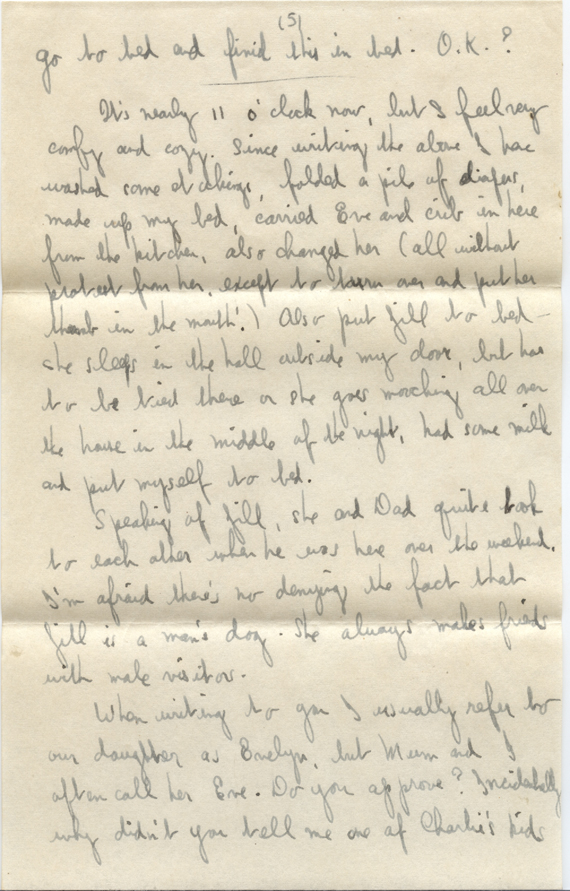 (5)
go to bed and finish this in bed. O.K.?
It's nearly 11 o'clock now, but I feel very
comfy and cozy. Since writing the above I have
washed some stockings, folded a pile of diapers,
made up my bed, carried Eve and crib in here
from the kitchen, also changed her (all without
protest from her, except to turn over and put her
thumb in the mouth!) Also put Jill to bed –
she sleeps in the hall outside my door, but has
to be tied there or she goes mooching all over
the house in the middle of the night, had some milk
and put myself to bed.
Speaking of Jill, she and Dad quite took
to each other when he was here over the weekend.
I'm afraid there's no denying the fact that
Jill is a man's dog. She always makes friends
with male visitors.
When writing to you I usually refer to
our daughter as Evelyn, but Mum and I
often call her Eve. Do you approve? Incidentally
why didn't you tell me one of Charlie's kids